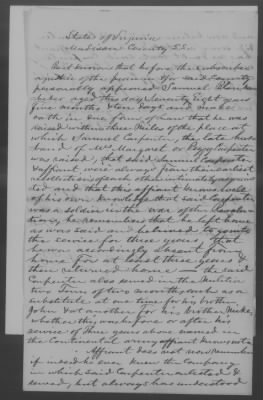 State of Virginia
Madison County S.S.
Be it known that before the subscriber
a justice of the peace in & for said County
personally appeared Samuel
aged this day Seventy eight years
five months & ten days and made
oath in due form of Law that he was
raised within three miles of the place at
which Samuel Carpenter, the late hus-
band of Mrs Margaret or Peggy Carpenter
was raised, that said Samuel Carpenter
& affiant were always from their earliest
recollection of each other intimately acquain
ted and that this affiant knows well
of his own knowledge that said Carpenter
was a soldier in the war of the Revolu-
tion, he remembers that he left home
as was said and believed to join the
the service for three years, that
he was accordingly absent from
home for at least three years &
then returned home — the said
Carpenter also served in the militia
two tours of two months each as a
substitute at one time for his brother
John & at another for his brother
whether this was before or after his
service of three years above named in
the Continental army affiant knows not.
Affiant does not now remember
if indeed he ever knew the Company
in which said Carpenter enlisted &
served, but always has understood